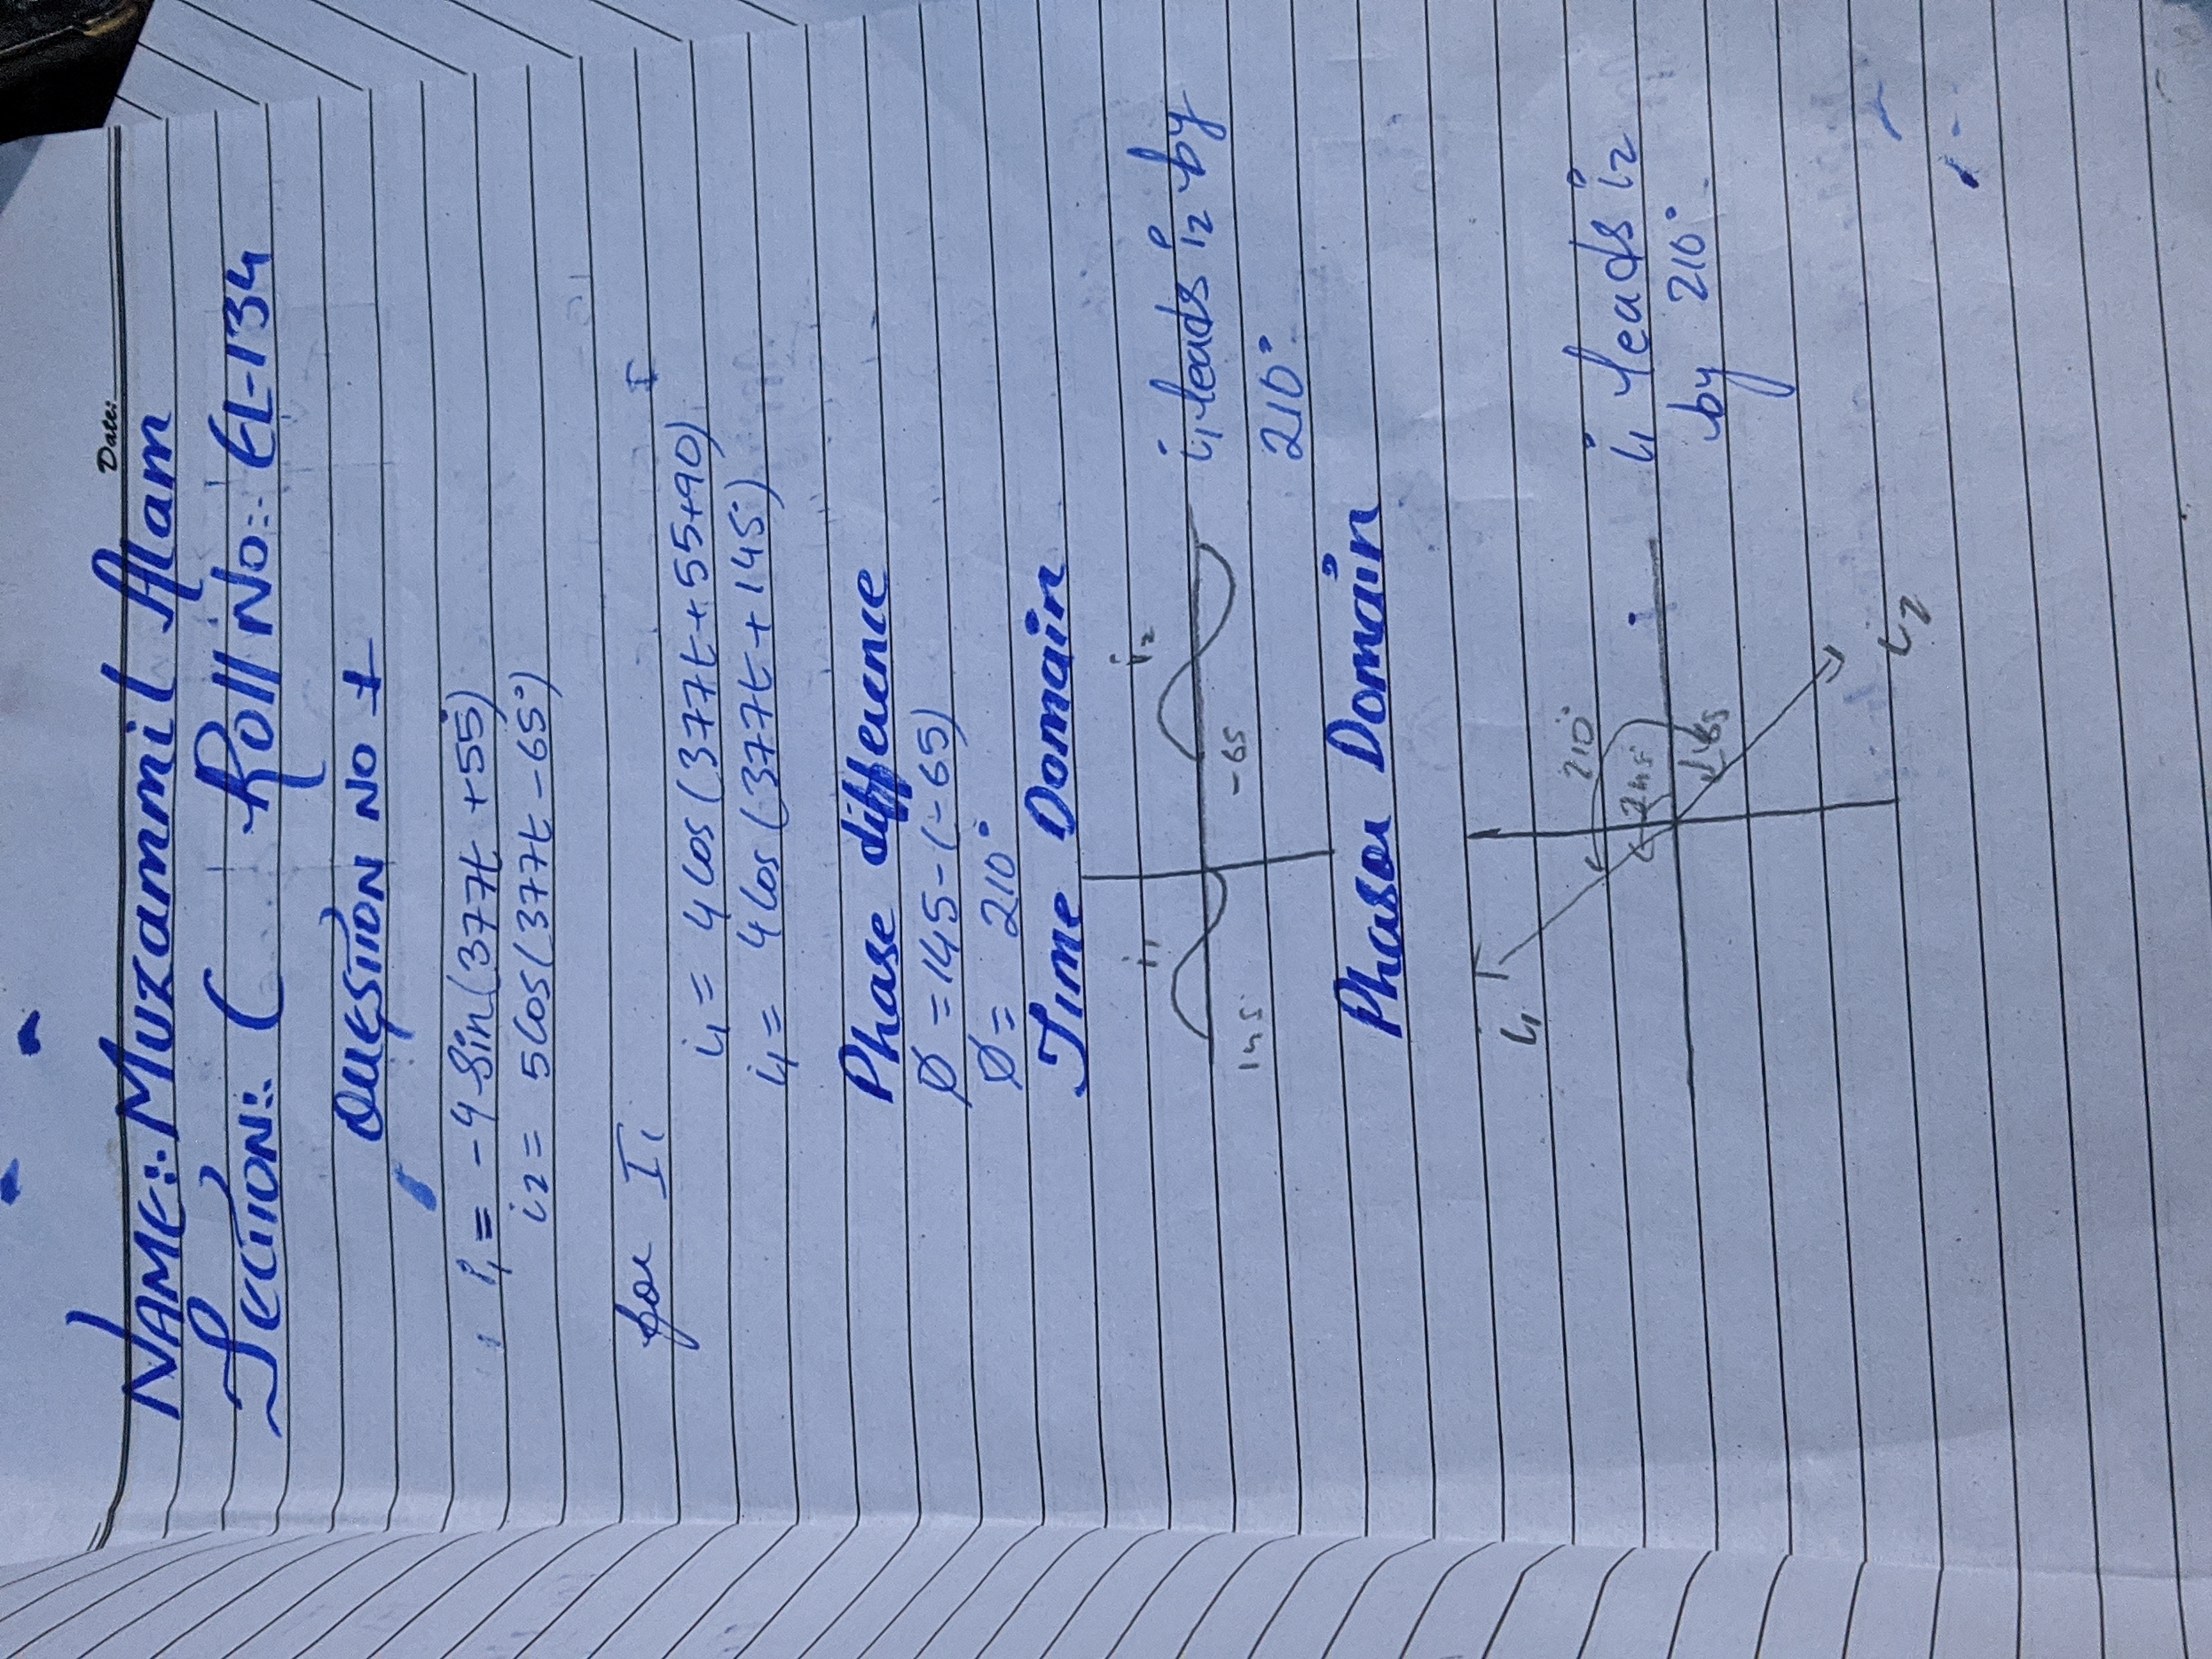 Date:
NAME:. Muzammil Alam
SECTION:. C Roll No:. EL-134
QUESTION NO 1
i₁ = -4 Sin(377t +55°)
i2 = 5Cos(377t -65°)
for I₁
i₁ = 4 Cos (377t+55+90)
i₁ = 4 Cos (377t+145°)
Phase difference
Ø =145-(-65)
Ø = 210°
Time Domain
i₁ i₂
145° -65
i₁ leads i₂ by
210°
Phasor Domain
i₁
210°
145°
i₁ leads i₂
-65
by 210°
i₂